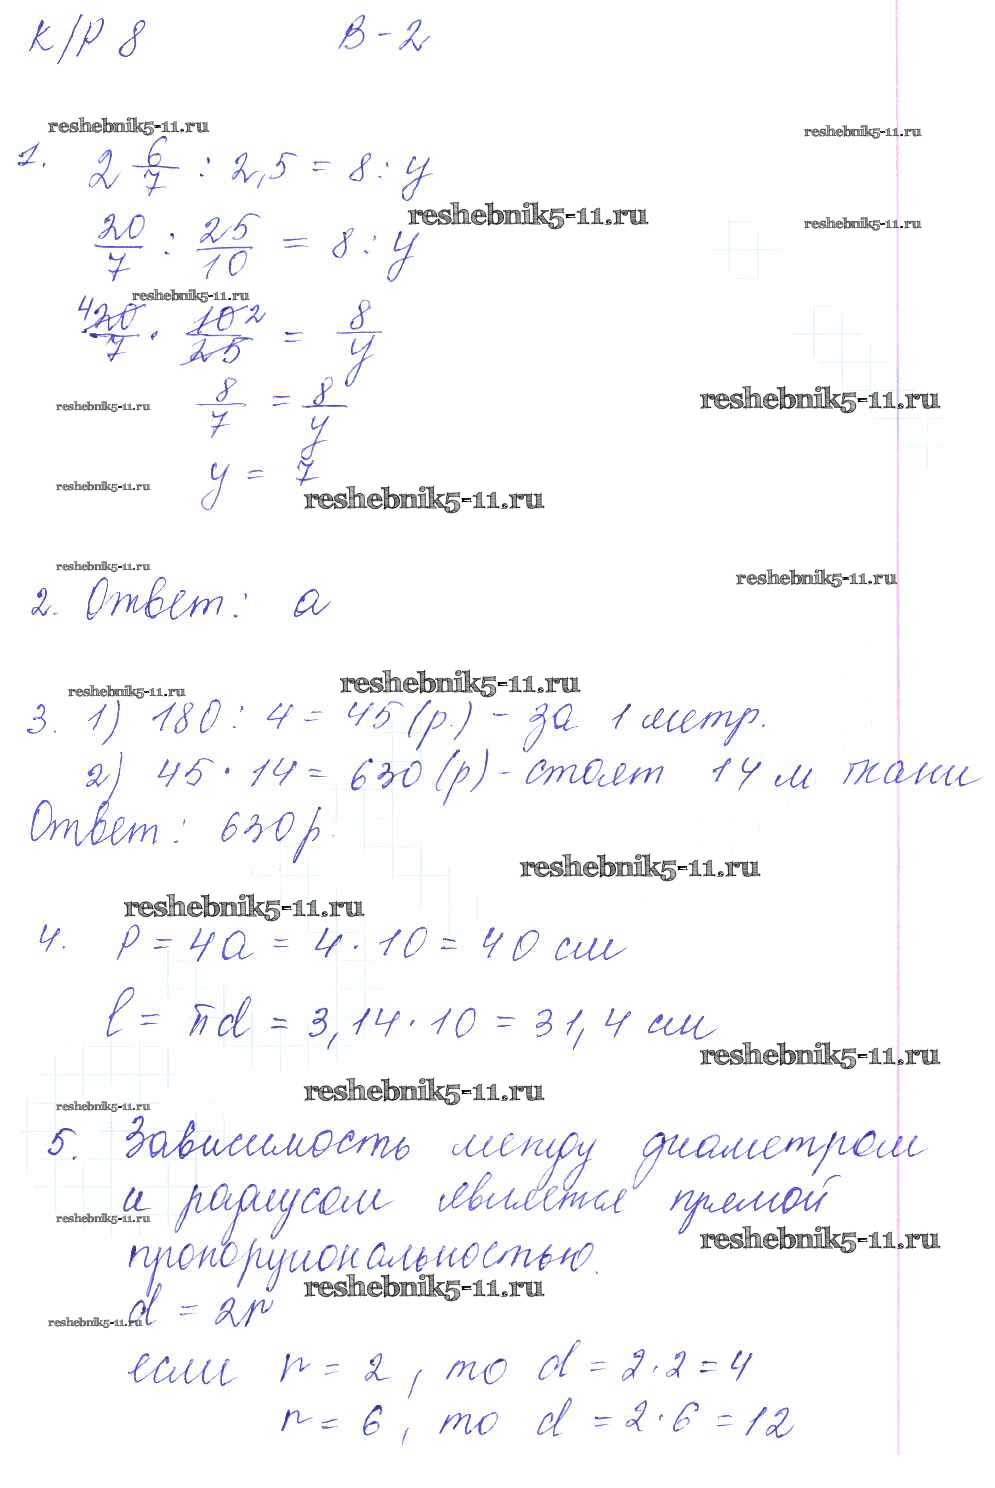 К/Р 8 В-2
reshebnik5-11.ru
reshebnik5-11.ru
1. 2 6/7 : 2,5 = 8 : y
reshebnik5-11.ru
reshebnik5-11.ru
20/7 : 25/10 = 8 : y
reshebnik5-11.ru
4 20/7 · 10 2/25 = 8/y
reshebnik5-11.ru
reshebnik5-11.ru
8/7 = 8/y
y = 7
reshebnik5-11.ru
reshebnik5-11.ru
reshebnik5-11.ru
reshebnik5-11.ru
2. Ответ: а
reshebnik5-11.ru
reshebnik5-11.ru
3. 1) 180 : 4 = 45 (р.) - за 1 метр.
2) 45 · 14 = 630 (р) - стоят 14 м ткани
Ответ: 630 р.
reshebnik5-11.ru
reshebnik5-11.ru
4. P = 4a = 4 · 10 = 40 см
l = πd = 3,14 · 10 = 31,4 см
reshebnik5-11.ru
reshebnik5-11.ru
reshebnik5-11.ru
5. Зависимость между диаметром
и радиусом является прямой
reshebnik5-11.ru
reshebnik5-11.ru
пропорциональностью.
reshebnik5-11.ru
d = 2r
reshebnik5-11.ru
если r = 2, то d = 2 · 2 = 4
r = 6, то d = 2 · 6 = 12